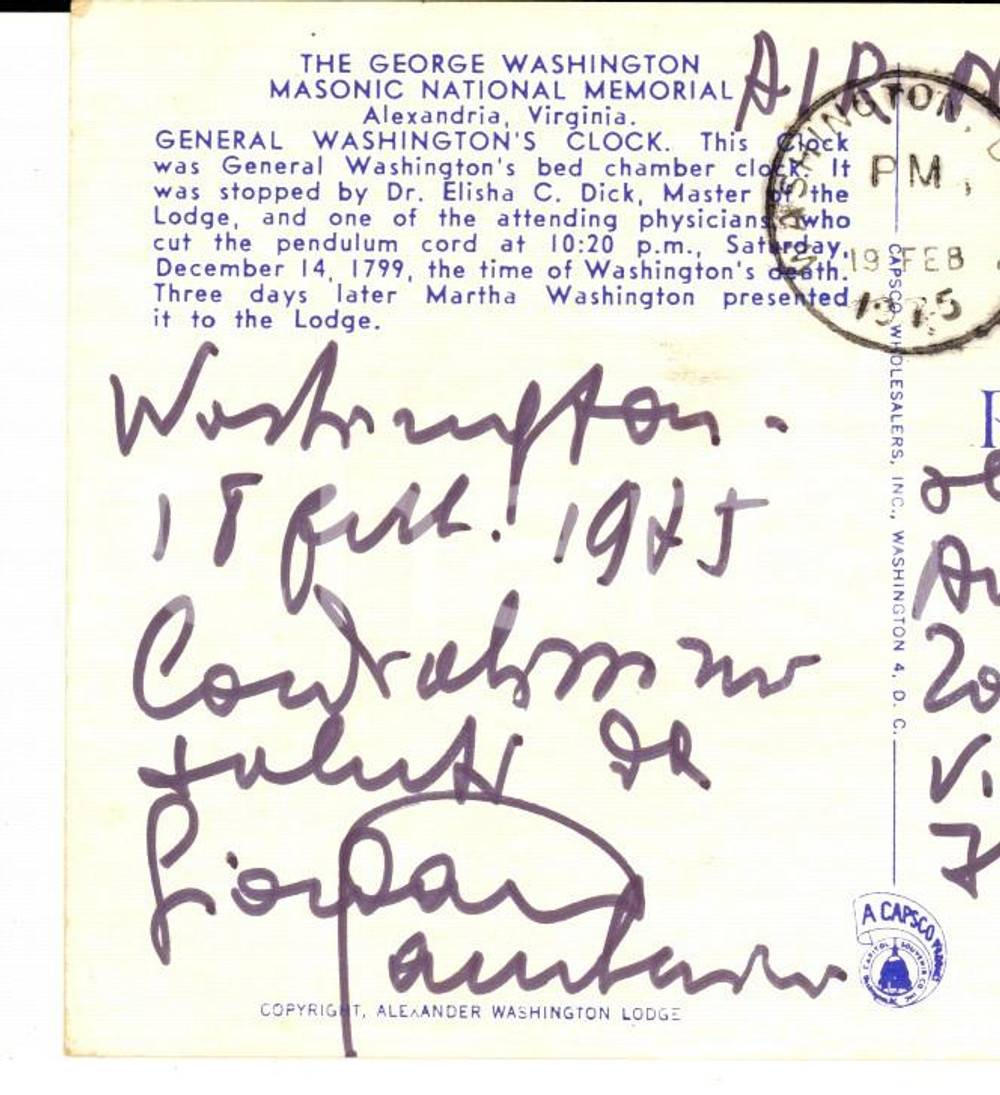 THE GEORGE WASHINGTON
MASONIC NATIONAL MEMORIAL
Alexandria, Virginia.
GENERAL WASHINGTON'S CLOCK. This Clock
was General Washington's bed chamber clock. It
was stopped by Dr. Elisha C. Dick, Master of the
Lodge, and one of the attending physicians who
cut the pendulum cord at 10:20 p.m., Saturday,
December 14, 1799, the time of Washington's death.
Three days later Martha Washington presented
it to the Lodge.
AIR
WASHINGTON,
PM
19 FEB
1975
Washington -
18 febb. 1975
Cordialissimi
saluti da
Giordano
COPYRIGHT, ALEXANDER WASHINGTON LODGE
CAPSCO WHOLESALERS, INC., WASHINGTON 4, D. C.
A CAPSCO
CAPITOL SOUVENIR CO. INC.
20